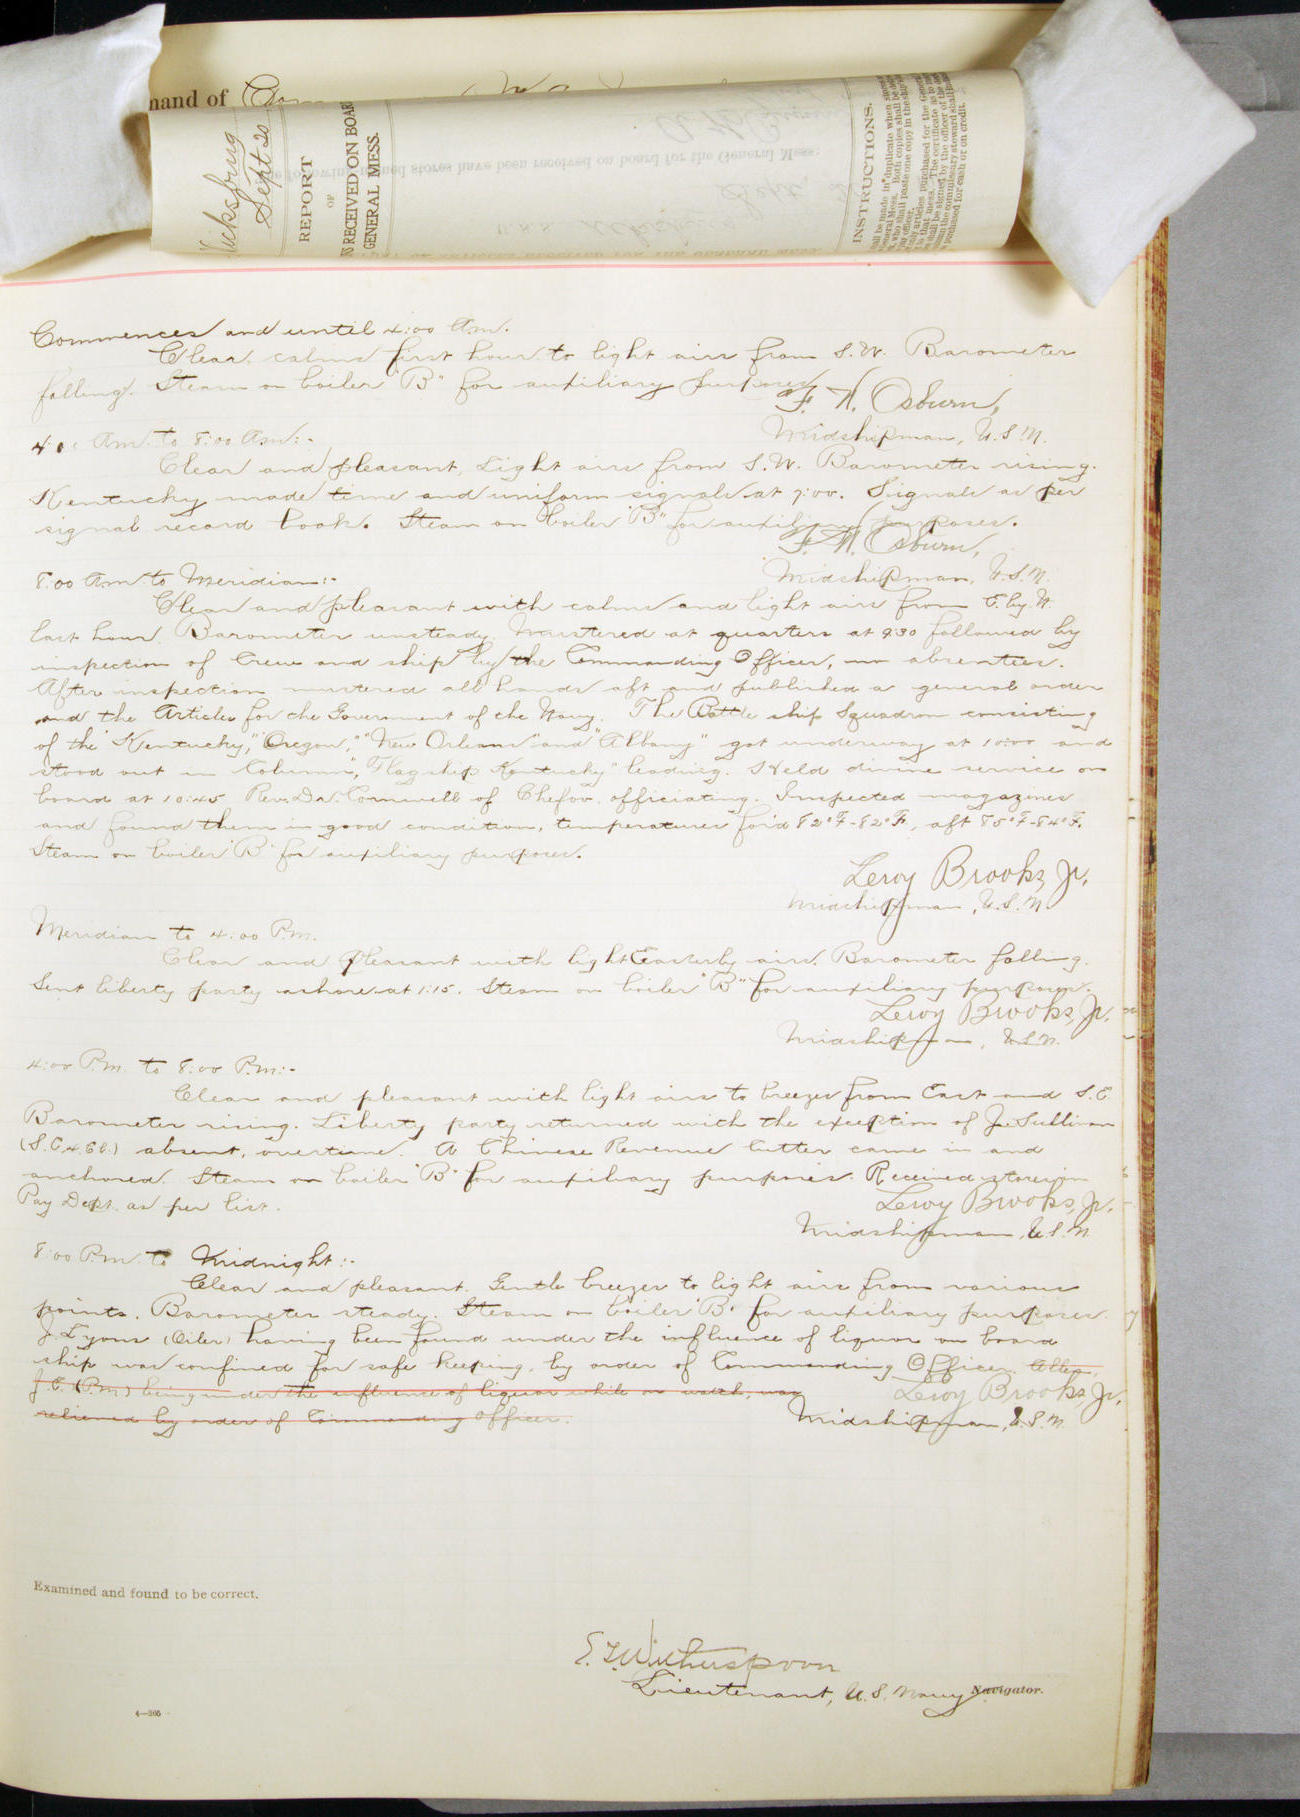 mand of
Vicksburg
Sept 20
REPORT
OF
RECEIVED ON BOARD
GENERAL MESS.
The following named stores have been received on board for the General Mess:
INSTRUCTIONS.
Commences and until 4:00 A.m.
Clear, calms first hour to light airs from S.W. Barometer
falling. Steam on boiler "B" for auxiliary purposes.
F. N. Osburn,
Midshipman, U.S.N.
4:00 A.m. to 8:00 A.m:-
Clear and pleasant, Light airs from S.W. Barometer rising.
Kentucky made time and uniform signals at 7:00. Signals as per
signal record book. Steam on boiler "B" for auxiliary purposes.
F. N. Osburn,
Midshipman, U.S.N.
8:00 A.m. to Meridian:-
Clear and pleasant with calms and light airs from E. by N.
last hour. Barometer unsteady. Mustered at quarters at 9:30 followed by
inspection of Crew and ship by the Commanding Officer, no absentees.
After inspection mustered all hands aft and published a general order
and the Articles for the Government of the Navy. The Battle ship Squadron consisting
of the "Kentucky," "Oregon," "New Orleans" and "Albany" got underway at 10:00 and
stood out in Column, "Flagship Kentucky" leading. Held divine service on
board at 10:45 Rev. Dr. Cornwell of Chefoo, officiating. Inspected magazines
and found them in good condition, temperatures for'd 82°F-82°F, aft 85°F-84°F.
Steam on boiler "B" for auxiliary purposes.
Leroy Brooks, Jr.
Midshipman, U.S.N.
Meridian to 4:00 P.m.
Clear and pleasant with light Easterly airs. Barometer falling.
Sent liberty party ashore at 1:15. Steam on boiler "B" for auxiliary purposes.
Leroy Brooks, Jr.
Midshipman, U.S.N.
4:00 P.m. to 8:00 P.m:-
Clear and pleasant with light airs to breezes from East and S.E.
Barometer rising. Liberty party returned with the exception of J. Sullivan
absent, overtime. A Chinese Revenue Cutter came in and
anchored. Steam on boiler "B" for auxiliary purposes. Received stores in
Pay Dept. as per list.
Leroy Brooks, Jr.
Midshipman, U.S.N.
8:00 P.m. to Midnight:-
Clear and pleasant. Gentle breezes to light airs from various
points. Barometer steady. Steam on boiler "B" for auxiliary purposes.
J. Lyons (Oiler) having been found under the influence of liquor on board
ship was confined for safe keeping, by order of Commanding Officer. Allen,
J.E. (P.m.) being under the influence of liquor while on watch, was
relieved by order of Commanding Officer.
Leroy Brooks, Jr.
Midshipman, U.S.N.
Examined and found to be correct.
Witherspoon
Lieutenant, U.S. Navy Navigator.